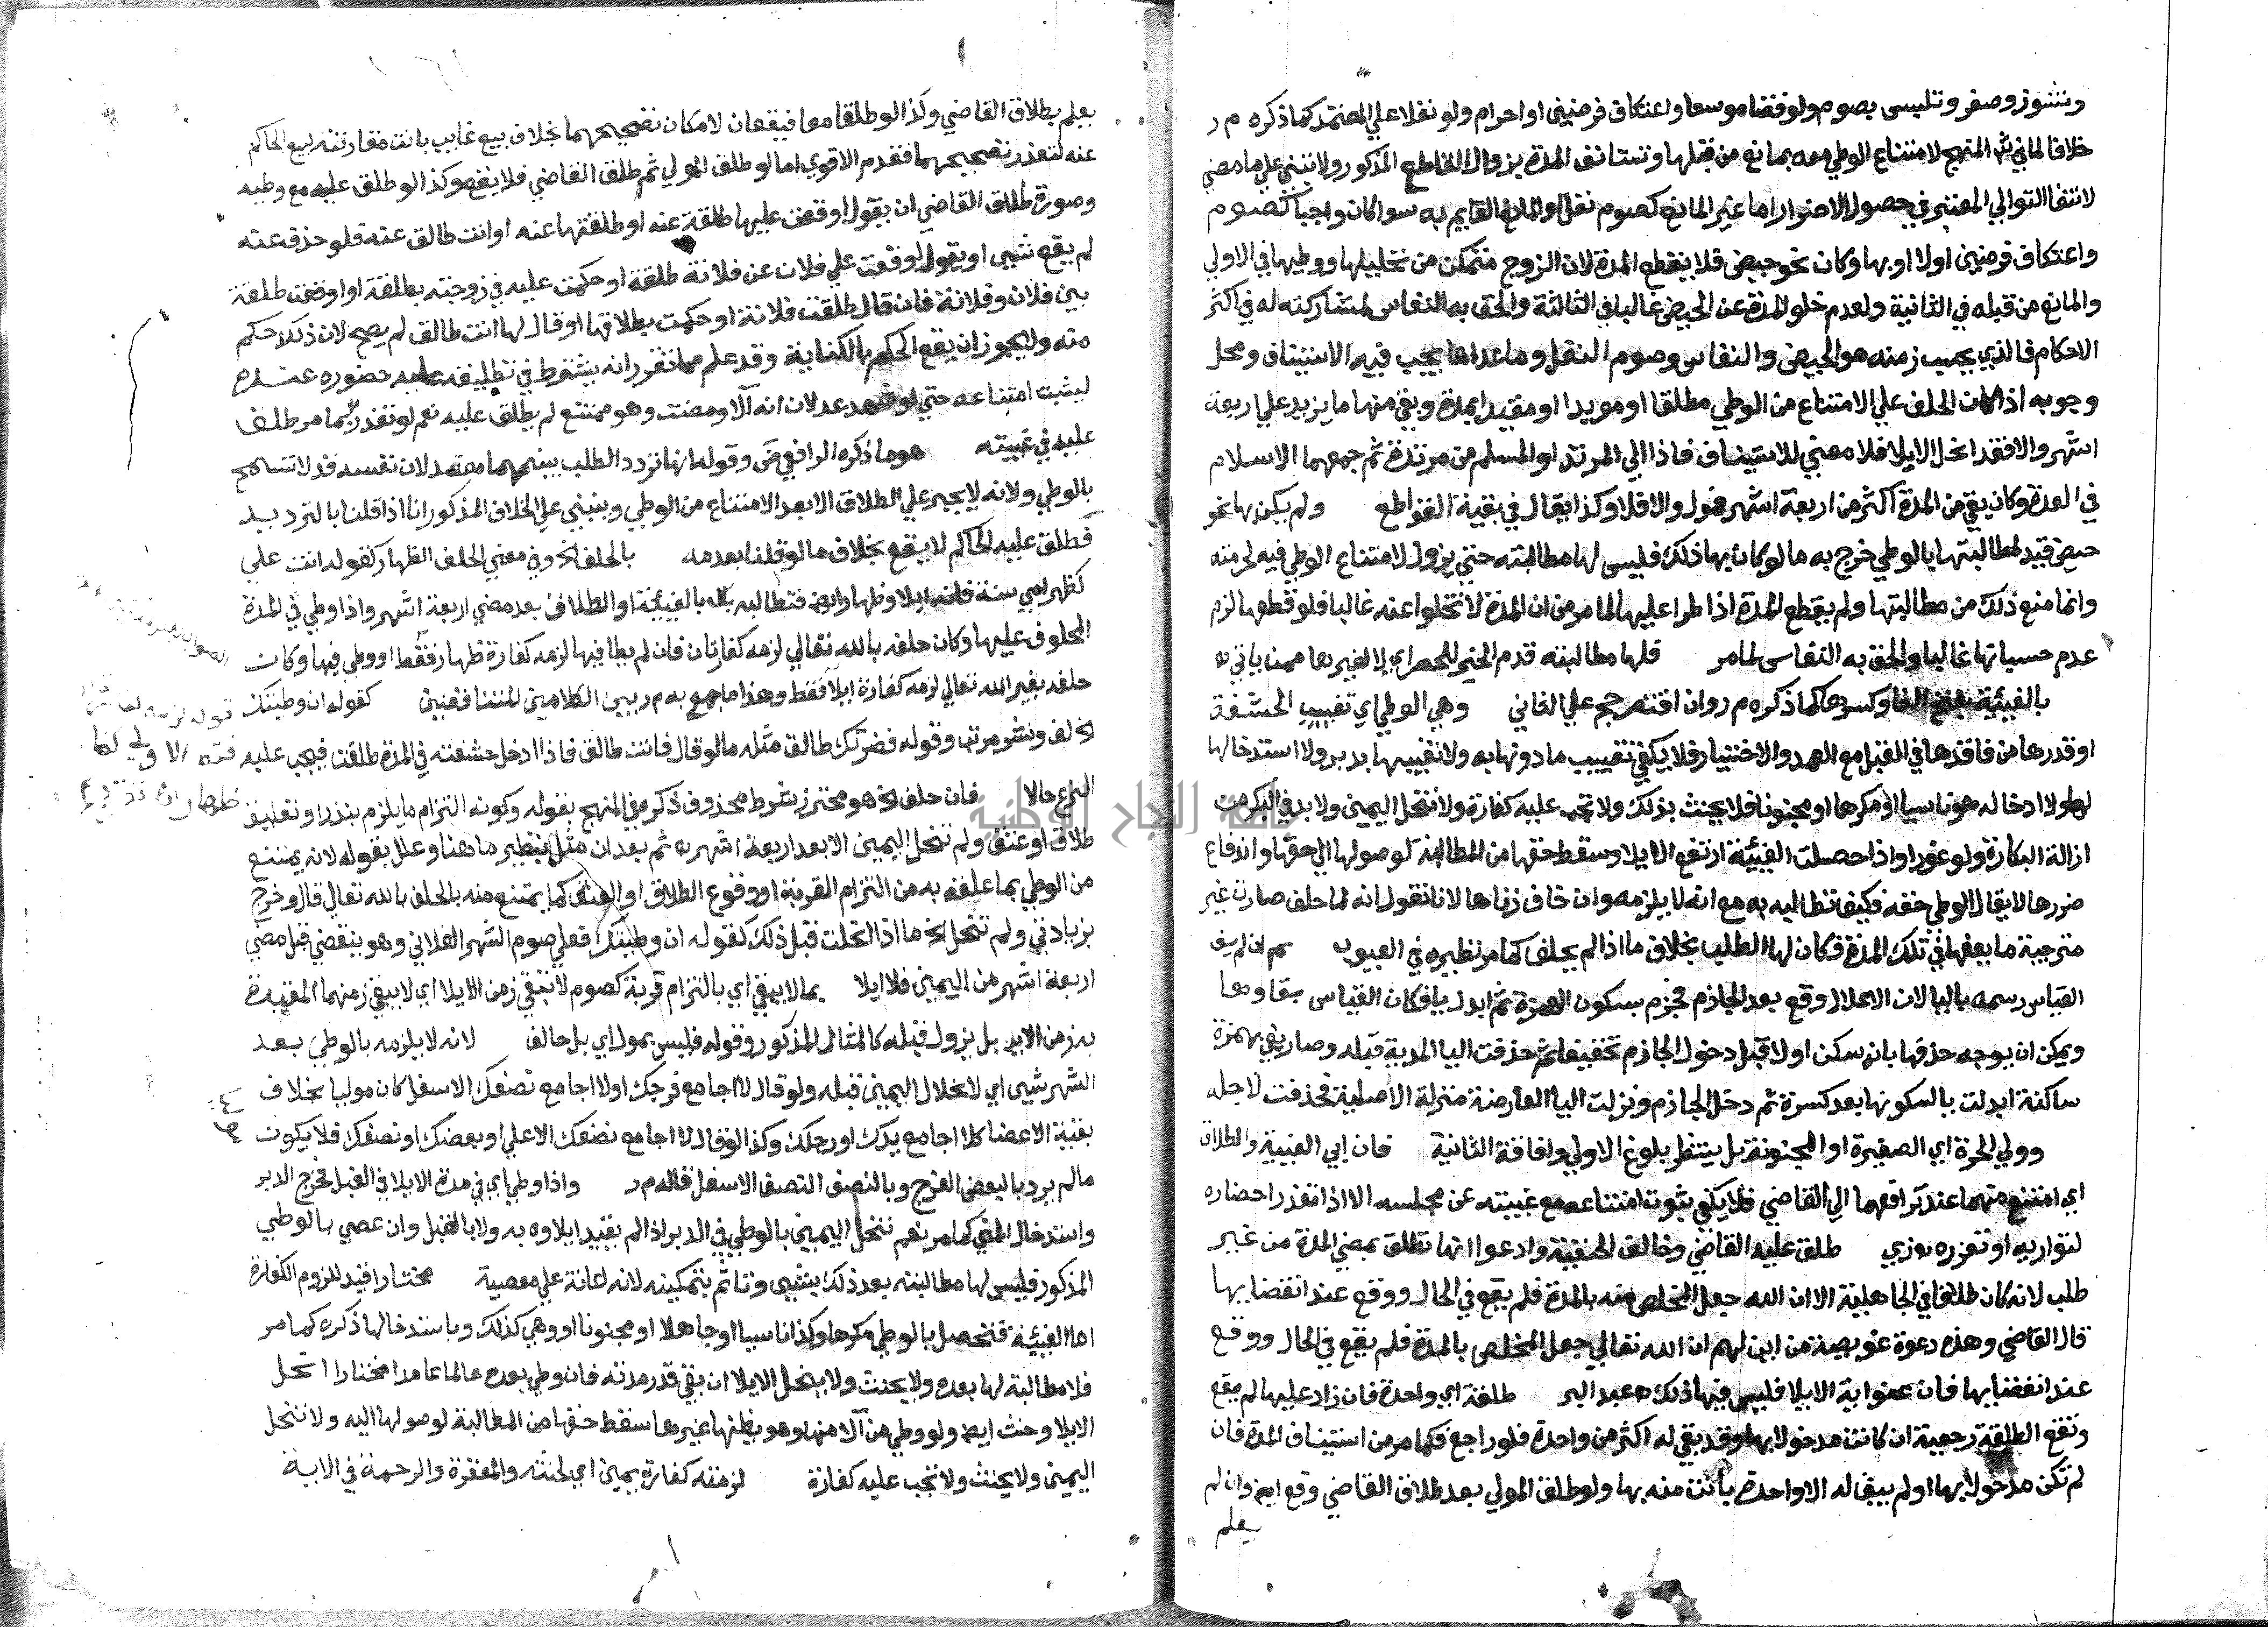 ونشوز وصغر وتلبس بصوم ولو قضا موسعا واعتكاف فرضيني او احرام ولو نفلا علي المعتمد كما ذكره م ر
خلافا لما في المنهج لامتناع الوطي معه بمانع من قبلها وتستانف المدة بزوال القاطع المذكور ولا تبني علي ما مضي
لانتفا التوالي المعتبر في حصول الاضرار اما غير المانع كصوم نفل او المانع القايم به سوا كان واجبا كصوم
واعتكاف فرضيني اولا او بها وكان نحو حيض فلا يقطع المدة لان الزوج متمكن من تحليلها ووطيها في الاولي
والمانع من قبله في الثانية ولعدم خلو المدة عن الحيض غالبا في الثالثة والحق به النفاس لمشاركته له في اكثر
الاحكام فالذي يحسب زمنه هو الحيض والنفاس وصوم النفل وما عداها يجب فيه الاستيناف ومحل
وجوبه اذا كان الحلف علي الامتناع من الوطي مطلقا او مويدا او مقيدا بمدة وبقي منها ما يزيد علي اربعة
اشهر والا فقد انحل الايلا فلا معني للاستيناف فاذا الي المرتد او المسلم من مرتدة ثم جمعهما الاسلام
في العدة وكان بقي من المدة اكثر من اربعة اشهر فمول والا فلا وكذا يقال في بقية القواطع ولم يكن بها نحو
حيض قيد لمطالبتها بالوطي خرج به ما لو كان بها ذلك فليس لها مطالبته حتي يزول لامتناع الوطي فيه لحرمته
وانما منع ذلك من مطالبتها ولم يقطع المدة اذا طرا عليها لما مر من ان المدة لا تخلوا عنه غالبا فلو قطعها لزم
عدم حسبانها غالبا والحق به النفاس لما مر فلها مطالبته قدم الخبر للحصر اي لا لغيرها ممن ياتي
بالفيئة بفتح الفا وكسرها كما ذكره م ر وان اقتصر حج علي الثاني وهي الوطي اي تغييب الحشفة
او قدرها من فاقدها في القبل مع العمد والاختيار فلا يكفي تغييب ما دونها به ولا تغييبها بدبر ولا استدخالها
لها ولا ادخاله هو ناسيا او مكرها او مجنونا فلا يحنث بذلك ولا تجب عليه كفارة ولا تنحل اليمين ولا بد في البكر من
ازالة البكارة ولو غورا واذا حصلت الفيئة ارتفع الايلا وسقط حقها من المطالبة لوصولها الي حقها واندفاع
ضررها لا يقال الوطي حقه فكيف تطالبه به مع انه لا يلزمه وان خاف زناها لانا نقول انه لما حلف صارت غير
مترجية ما يعفها في تلك المدة فكان لها الطلب بخلاف ما اذا لم يحلف كما مر نظيره في العيوب ثم ان لم يف
القياس رسمه باليا لان الاعلال وقع بعد الجازم فجزم بسكون الهمزة ثم ابدل يا فكان القياس بقاوها
ويمكن ان يوجه حذفها بانه سكن اولا قبل دخول الجازم تخفيفا ثم حذفت اليا المدية قبله وصار يفي بهمزة
ساكنة ابدلت يا لسكونها بعد كسرة ثم دخل الجازم ونزلت اليا العارضة منزلة الاصلية فحذفت لاجله
وولي الحرة اي الصغيرة او المجنونة بل ينتظر بلوغ الاولي وافاقة الثانية فان ابي الفيئة والطلاق
اي امتنع منهما عند ترافعهما الي القاضي فلا يكفي ثبوت امتناعه مع غيبته عن مجلسه الا اذا تعذر احضاره
لتواريه او تعززه طلق عليه القاضي وخالف الحنفية وادعوا انها تطلق بمضي المدة من غير
طلب لانه كان طلاقا في الجاهلية الا ان الله جعل المخلص منه بالمدة فلم يقع في الحال ووقع عند انقضايها
قال القاضي وهذه دعوة عويصة من اين لهم ان الله تعالي جعل المخلص بالمدة فلم يقع في الحال ووقع
عند انقضايها فان عنوا بة الايلا فليس فيها ذلك عبد البر طلقة اي واحدة فان زاد عليها لم يقع
وتقع الطلقة رجعية ان كانت مدخولا بها وقد بقي له اكثر من واحدة فلو راجع فكما مر من استيناف المدة فان
لم تكن مدخولا بها او لم يبق له الا واحدة بانت منه بها ولو طلق المولي بعد طلاق القاضي وقع ايض وان لم
يعلم
يعلم بطلاق القاضي وكذا لو طلقا معا فيقعان لامكان تصحيحهما بخلاف بيع غايب بانت مقارنته لبيع الحاكم
عنه لتعذر تصحيحهما فقدم الاقوي اما لو طلق المولي ثم طلق القاضي فلا يقع وكذا لو طلق عليه مع وطيه
وصورة طلاق القاضي ان يقول اوقعت عليها طلقة عنه او طلقتها عنه او انت طالق عنه فلو حذف عنه
لم يقع شيي او يقول اوقعت علي فلان عن فلانة طلقة او حكمت عليه في زوجته بطلقة او اوقعت طلقة
بين فلان وفلانة فان قال طلقت فلانة او حكمت بطلاقها او قال لها انت طالق لم يصح لان ذلك حكم
منه ولا يجوز ان يقع الحكم بالكناية وقد علم مما تقرر انه يشترط في تطليقه عليه حضوره عنده
ليثبت امتناعه حتي لو شهد عدلان انه آلا ومضت وهو ممتنع لم يطلق عليه نعم لو تعذر بما مر طلق
عليه في غيبته هو ما ذكره الرافعي وقوله انها تردد الطلب بينهما معتمد لان نفسه قد لا تسمح
بالوطي ولانه لا يجبر علي الطلاق الا بعد الامتناع من الوطي وينبني علي الخلاف المذكور انا اذا قلنا بالترديد
فطلق عليه الحاكم لا يقع بخلاف ما لو قلنا بعدمه بالحلف الخ وفي معني الحلف الظهار كقوله انت علي
كظهر امي سنة فانه ايلا وظهار ايض فتطالبه بالفيئة او الطلاق بعد مضي اربعة اشهر واذا وطي في المدة
المحلوف عليها وكان حلفه بالله تعالي لزمه كفارتان فان لم يطا فيها لزمه كفارة ظهار فقط او وطي فيها وكان
حلفه بغير الله تعالي لزمه كفارة ايلا فقط وهذا ما جمع به م ر بين الكلامين المتناقضين كقوله ان وطيتك
الخ لف ونشر مرتب وقوله فضرتك طالق مثله ما لو قال فانت طالق فاذا ادخل حشفته في المدة طلقت فيجب عليه
النزع حالا فان حلف الخ هو محترز شرط محذوف ذكره في المنهج بقوله وكونه التزام ما يلزم بنذر او تعليق
طلاق او عتق ولم تنحل اليمين الا بعد اربعة اشهر ثم بعد ان مثل بنظير ما هنا وعلل بقوله لانه يمتنع
من الوطي بما علقه به من التزام القربة او وقوع الطلاق او العتق كما يمتنع منه بالحلف بالله تعالي قال وخرج
بزيادتي ولم تنحل الخ ما اذا انحلت قبل ذلك كقوله ان وطيتك فعلي صوم الشهر الفلاني وهو ينقضي قبل مضي
اربعة اشهر من اليمين فلا ايلا بما لا يبقي اي بالتزام قربة كصوم لا تبقي زمن الايلا اي لا يبقي زمنها المقيدة
به زمن الايلا بل يزول قبله كالمثال المذكور وقوله فليس بمول اي بل حالف لانه لا يلزمه بالوطي بعد
الشهر شيي اي لانحلال اليمين قبله ولو قال لا اجامع فرجك او لا اجامع نصفك الاسفل كان موليا بخلاف
بقية الاعضا كلا اجامع يدك او رجلك وكذا لو قال لا اجامع نصفك الاعلي او بعضك او نصفك فلا يكون
ما لم يرد بالبعض الفرج وبالنصف النصف الاسفل قاله م ر واذا وطي اي في مدة الايلا في القبل خرج الدبر
واستدخال المني كما مر نعم تنحل اليمين بالوطي في الدبر اذا لم يقيد ايلاوه به ولا بالقبل وان عصي بالوطي
المذكور فليس لها مطالبته بعد ذلك بشيي وتاثم بتمكينه لانه اعانة علي معصية مختارا قيد للزوم الكفارة
اما الفيئة فتحصل بالوطي مكرها وكذا ناسيا او جاهلا او مجنونا او وهي كذلك وباستدخالها ذكره كما مر
فلا مطالبة لها بعده ولا يحنث ولا ينحل الايلا ان بقي قدر مدته فان وطي بعده عالما عامدا مختارا انحل
الايلا وحنث ايض ولو وطي من آلا منها وهو يظنها غيرها سقط حقها من المطالبة لوصولها اليه ولا تنحل
اليمين ولا يحنث ولا تجب عليه كفارة لزمته كفارة يمين اي لحنثه والمغفرة والرحمة في الاية
جامعة النجاح الوطنية